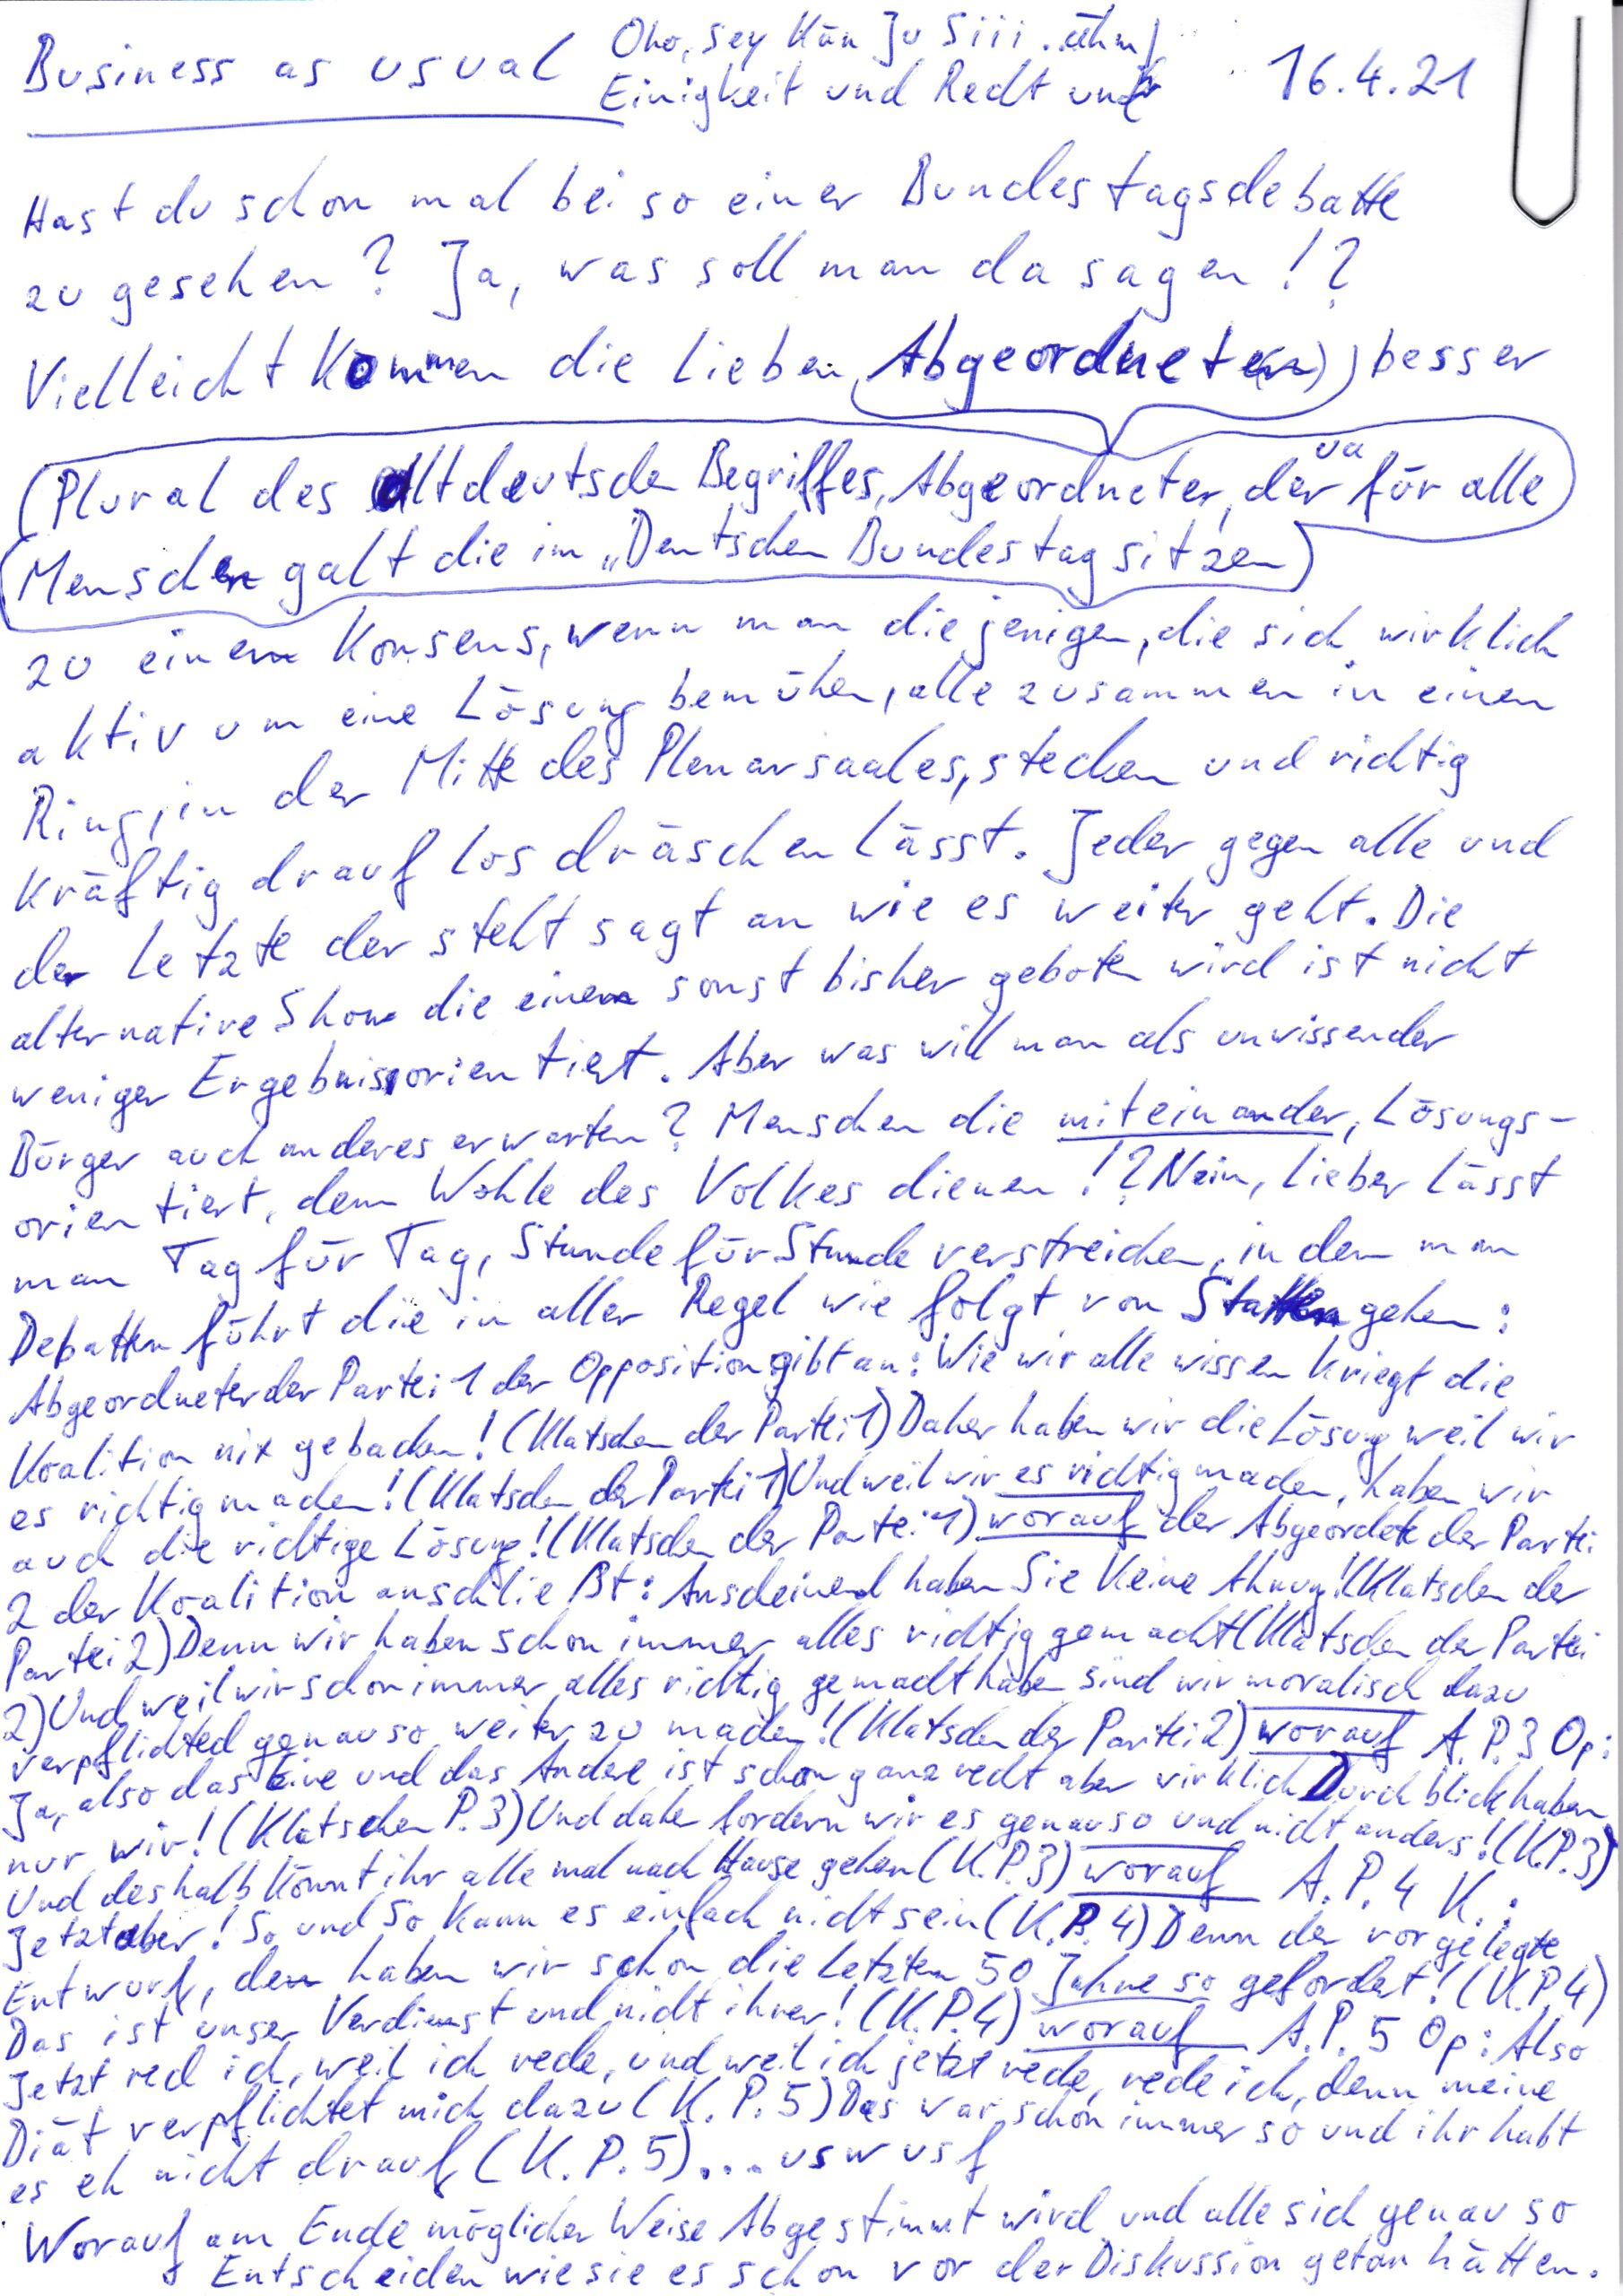 Business as usual
Oho, Sey Kän Ju Siii .. ähm
Einigkeit und Recht und
16.4.21
Hast du schon mal bei so einer Bundestagsdebatte
zu gesehen? Ja, was soll man da sagen!?
Vielleicht kommen die lieben Abgeordnete(n) besser
(Plural des altdeutschen Begriffes, Abgeordneter, der ua für alle
Menschen galt die im „Deutschen Bundestag sitzen)
zu einem Konsens, wenn man diejenigen, die sich wirklich
aktiv um eine Lösung bemühen, alle zusammen in einen
Ring, in der Mitte des Plenarsaales, stecken und richtig
kräftig drauf los dräschen lässt. Jeder gegen alle und
der letzte der steht sagt an wie es weiter geht. Die
alternative Show die einem sonst bisher geboten wird ist nicht
weniger Ergebnisorientiert. Aber was will man als unwissender
Bürger auch anderes erwarten? Menschen die miteinander, Lösungs-
orientiert, dem Wohle des Volkes dienen!? Nein, lieber lässt
man Tag für Tag, Stunde für Stunde verstreichen, in dem man
Debatten führt die in aller Regel wie folgt von Statten gehen:
Abgeordneter der Partei 1 der Opposition gibt an: Wie wir alle wissen kriegt die
Koalition nix gebacken! (Klatschen der Partei 1) Daher haben wir die Lösung weil wir
es richtig machen! (Klatschen der Partei 1) Und weil wir es richtig machen, haben wir
auch die richtige Lösung! (Klatschen der Partei 1) worauf der Abgeordete der Partei
2 der Koalition anschließt: Anscheinend haben Sie keine Ahnung! (Klatschen der
Partei 2) Denn wir haben schon immer alles richtig gemacht (Klatschen der Partei
2) Und weil wir schon immer alles richtig gemacht haben sind wir moralisch dazu
verpflichted genauso weiter zu machen! (Klatschen der Partei 2) worauf A. P. 3 Op:
Ja, also das Eine und das Andere ist schon ganz recht aber wirklich Durchblick haben
nur wir! (Klatschen P. 3) Und daher fordern wir es genauso und nicht anders! (K.P.3)
Und deshalb könnt ihr alle mal nach Hause gehen (K.P.3) worauf A. P. 4 K.:
Jetzt aber! So und So kann es einfach nicht sein (K.P. 4) Denn der vorgelegte
Entwurf, den haben wir schon die letzten 50 Jahre so gefordert! (K.P.4)
Das ist unser Verdienst und nicht ihrer! (K.P.4) worauf A.P. 5 Op: Also
Jetzt red ich, weil ich rede, und weil ich jetzt rede, rede ich, denn meine
Diät verpflichtet mich dazu (K. P. 5) Das war schon immer so und ihr habt
es eh nicht drauf (K. P. 5) ... usw usf
Worauf am Ende möglicher Weise Abgestimmt wird und alle sich genau so
Entscheiden wie sie es schon vor der Diskussion getan hätten.